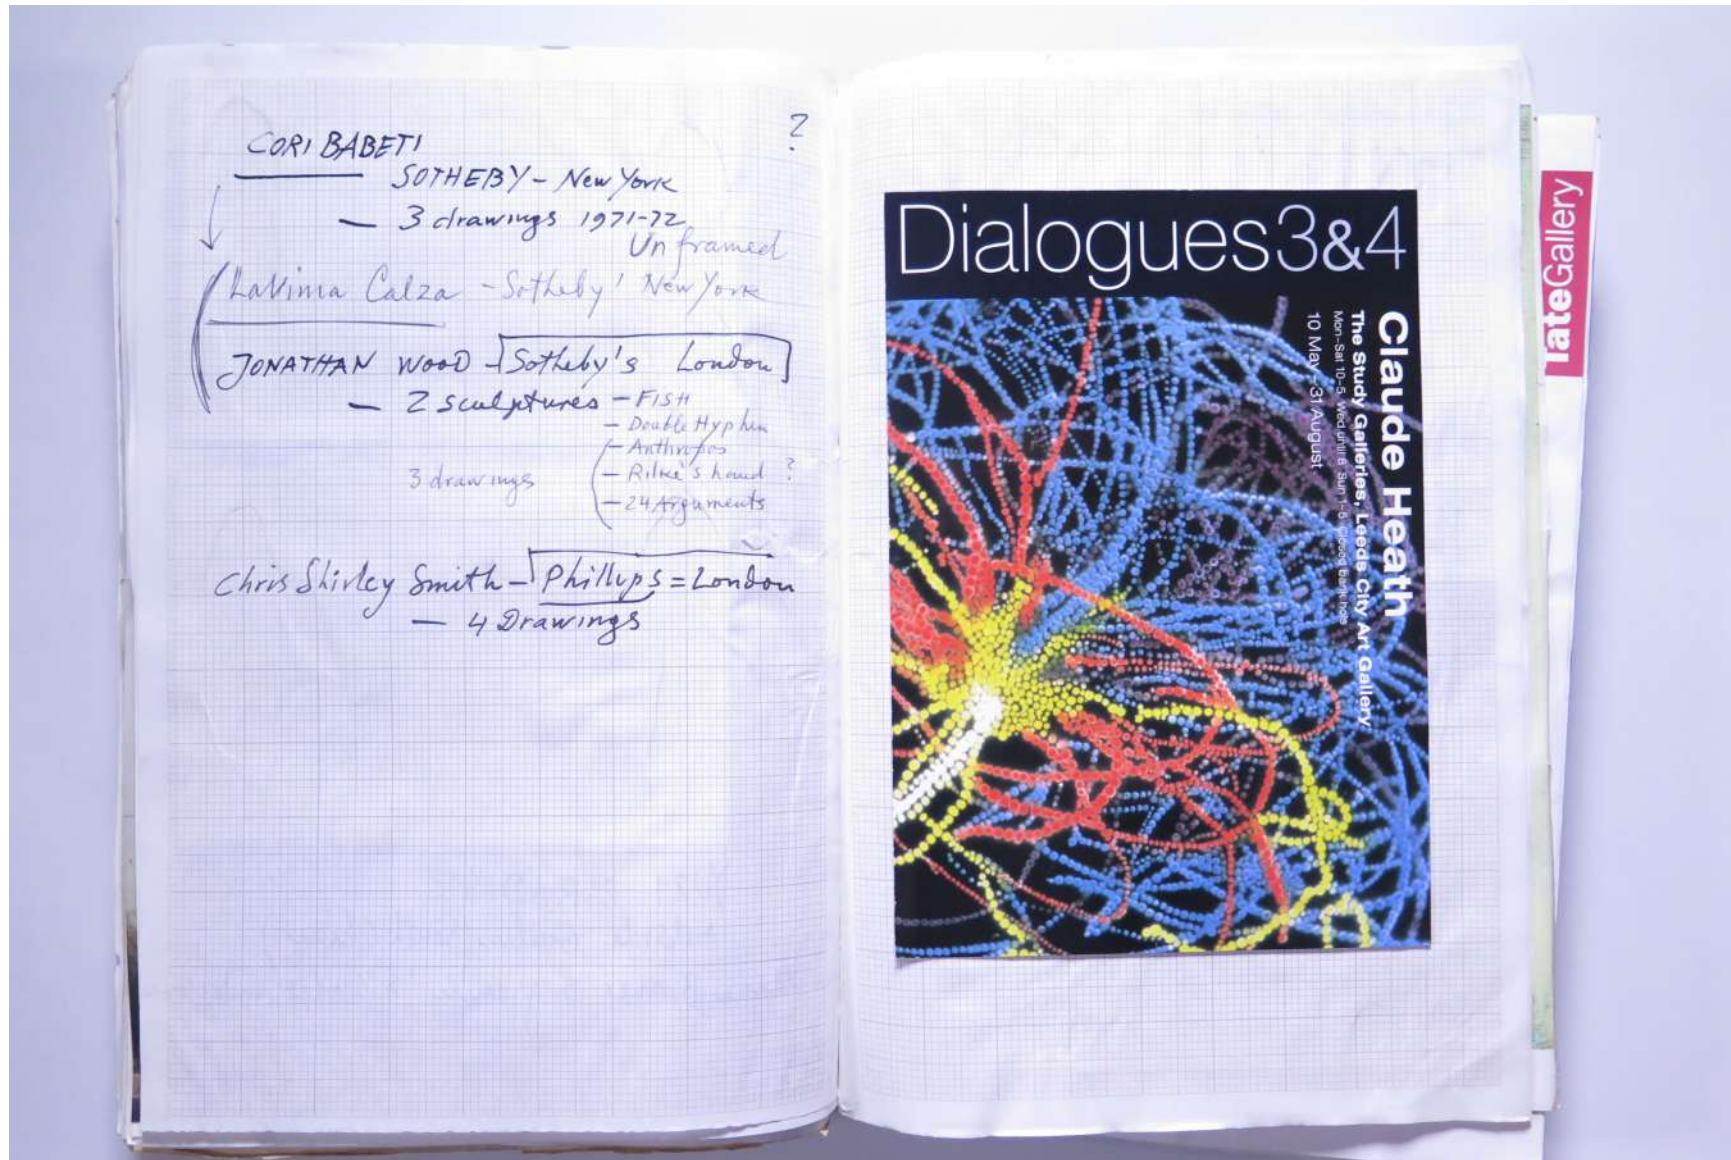 ?
CORI BABETI
SOTHEBY - New York
— 3 drawings 1971-72
Unframed
LaVinia Calza - Sotheby' New York
JONATHAN WOOD - Sotheby's London
— 2 sculptures - FISH
- Double Hyphen
- Anthropos
3 drawings - Rilke's hand ?
- 24 Arguments
Chris Shirley Smith - Phillips = London
— 4 Drawings
Dialogues3&4
Claude Heath
The Study Galleries, Leeds City Art Gallery
Mon-Sat 10-5 Wed until 8 Sun 1-5 closed bank hols
10 May - 31 August
tateGallery